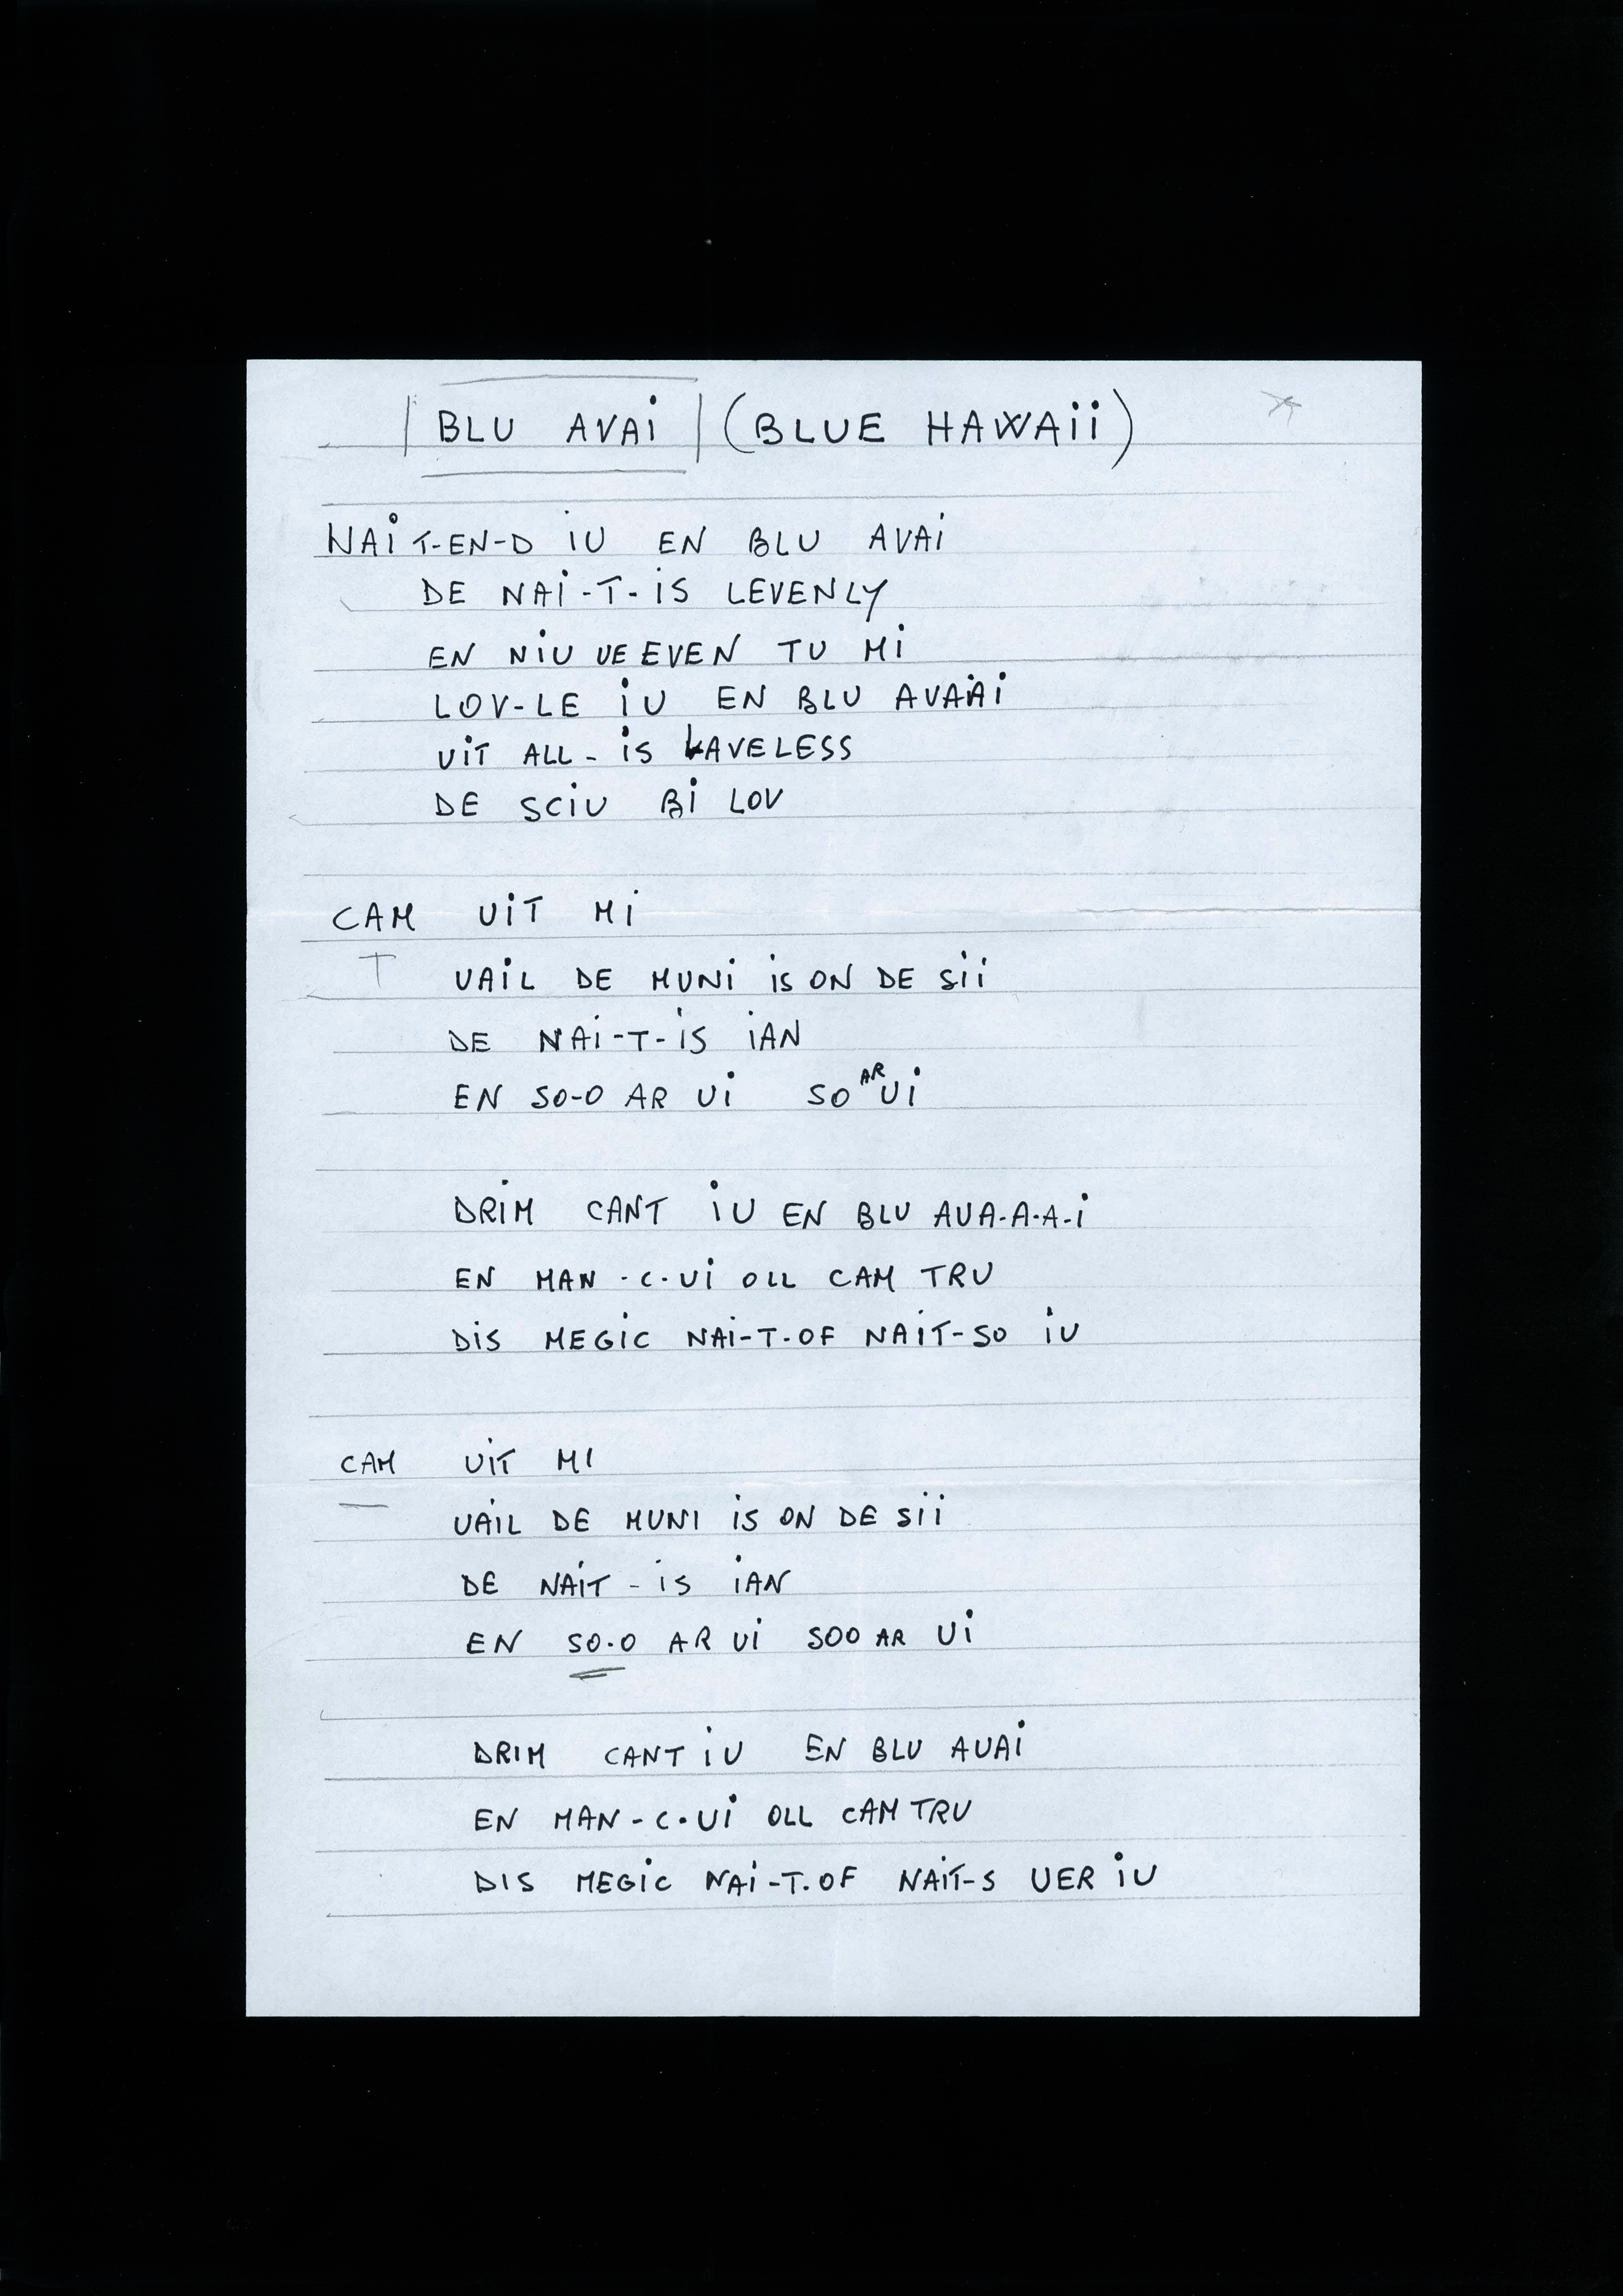 BLU AVAi (BLUE HAWAii)
NAiT-EN-D iU EN BLU AVAi
DE NAi-T-iS LEVENLY
EN NiU UE EVEN TU Mi
LOV-LE iU EN BLU AVAAi
UiT ALL-iS LAVELESS
DE SCiU Bi LOV
CAM UiT Mi
UAiL DE MUNi iS ON DE Sii
DE NAi-T-iS iAN
EN SO-O AR Ui SO AR Ui
DRiM CANT iU EN BLU AUA-A-A-i
EN MAN-C-Ui OLL CAM TRU
DiS MEGiC NAi-T-OF NAIT-SO iU
CAM UiT MI
UAiL DE MUNI iS ON DE Sii
DE NAiT-iS iAN
EN SO-O AR Ui SOO AR Ui
DRIM CANT iU EN BLU AUAi
EN MAN-C-Ui OLL CAM TRU
DIS MEGiC NAi-T.OF NAiT-S UER iU